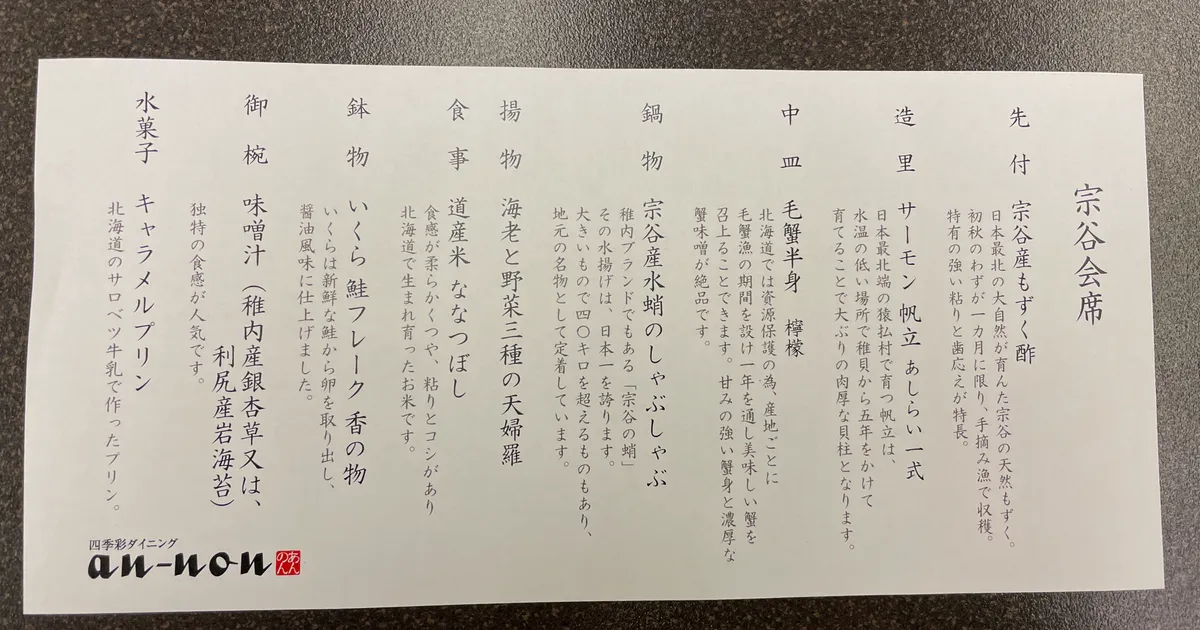 宗谷会席
先付 宗谷産もずく酢
日本最北の大自然が育んだ宗谷の天然もずく。
初秋のわずか一カ月に限り、手摘み漁で収穫。
特有の強い粘りと歯応えが特長。
造里 サーモン 帆立 あしらい一式
日本最北端の猿払村で育つ帆立は、
水温の低い場所で稚貝から五年をかけて
育てることで大ぶりの肉厚な貝柱となります。
中皿 毛蟹半身 檸檬
北海道では資源保護の為、産地ごとに
毛蟹漁の期間を設け一年を通し美味しい蟹を
召上ることができます。甘みの強い蟹身と濃厚な
蟹味噌が絶品です。
鍋物 宗谷産水蛸のしゃぶしゃぶ
稚内ブランドでもある「宗谷の蛸」
その水揚げは、日本一を誇ります。
大きいもので四〇キロを超えるものもあり、
地元の名物として定着しています。
揚物 海老と野菜三種の天婦羅
食事 道産米 ななつぼし
食感が柔らかくつや、粘りとコシがあり
北海道で生まれ育ったお米です。
鉢物 いくら 鮭フレーク 香の物
いくらは新鮮な鮭から卵を取り出し、
醤油風味に仕上げました。
御椀 味噌汁（稚内産銀杏草又は、
利尻産岩海苔）
独特の食感が人気です。
水菓子 キャラメルプリン
北海道のサロベツ牛乳で作ったプリン。
四季彩ダイニング
an-non
あんのん